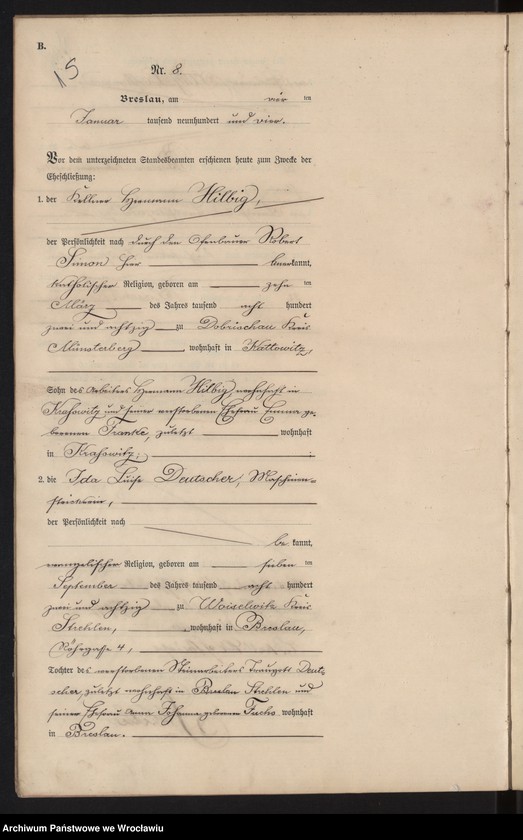 B.
15
Nr. 8.
Breslau, am vier ten
Januar tausend neunhundert und vier.
Vor dem unterzeichneten Standesbeamten erschienen heute zum Zwecke der
Eheschließung:
1. der Kellner Hermann Hilbig,
der Persönlichkeit nach durch den Ofenbauer Robert
Simon hier anerkannt,
katholischer Religion, geboren am zehn ten
März des Jahres tausend acht hundert
zwei und achtzig zu Dobrischau Kreis
Münsterberg wohnhaft in Kattowitz,
Sohn des Arbeiters Hermann Hilbig, wohnhaft in
und seiner verstorbenen Ehefrau Emma ge-
borenen Franke, zuletzt wohnhaft
in ;
2. die Ida Luise Deutscher, Maschinen-
strickerin,
der Persönlichkeit nach
be kannt,
evangelischer Religion, geboren am sieben ten
September des Jahres tausend acht hundert
zwei und achtzig zu Woiselwitz Kreis
Strehlen, wohnhaft in Breslau,
4,
Tochter des verstorbenen Steinarbeiters Traugott Deut-
scher, zuletzt wohnhaft in Strehlen und
seiner Ehefrau Anna Johanna geborenen Fuchs wohnhaft
in Breslau.
Archiwum Państwowe we Wrocławiu